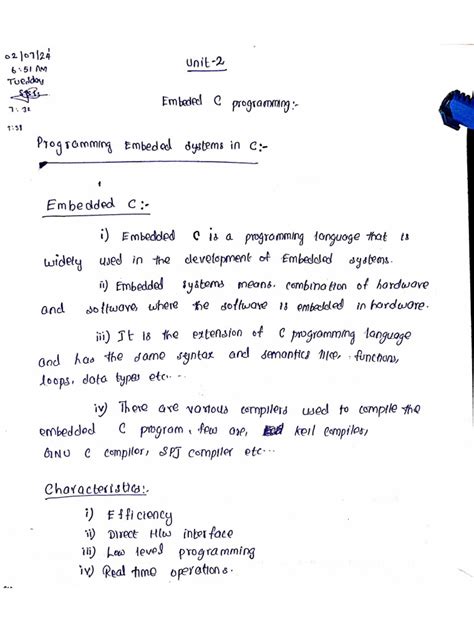 02/07/24
6:51 AM
Tuesday
7:31
Unit-2
Embeded C programming:-
Programming Embeded systems in C:-
Embedded C:-
i) Embedded C is a programming language that is
widely used in the development of Embedded systems.
ii) Embedded systems means combination of hardware
and software, where the software is embedded in hardware.
iii) It is the extension of C programming language
and has the same syntax and semantics like, functions,
loops, data types etc...
iv) There are various compilers used to compile the
embedded C program, few are, keil compiler,
GNU C compiler, SPJ compiler etc...
Characteristics:-
i) Efficiency
ii) Direct H/w interface
iii) Low level programming
iv) Real time operations.